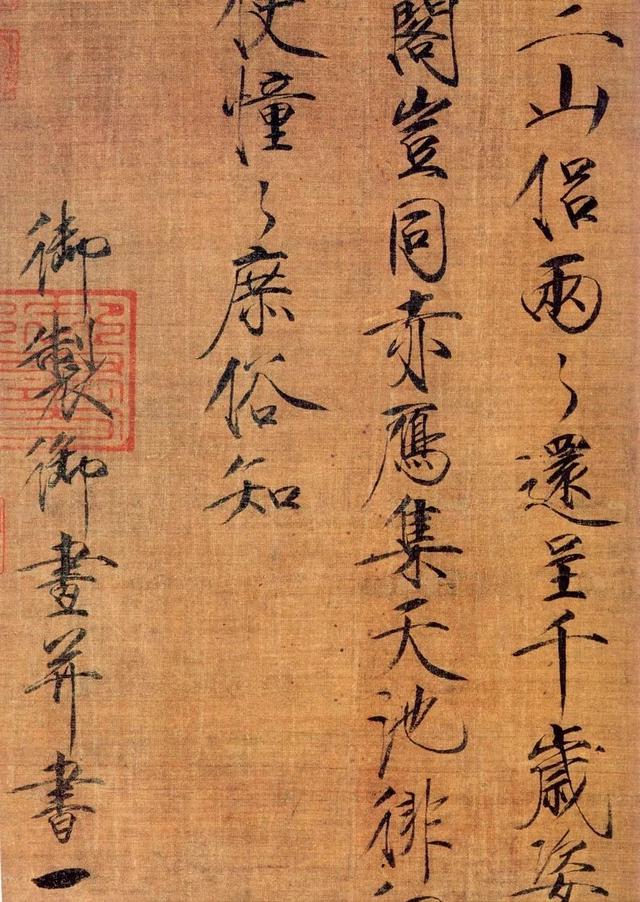 三山侶兩々還呈千歲姿
閣豈同赤鴈集天池徘
使憧々庶俗知
御製御畫并書